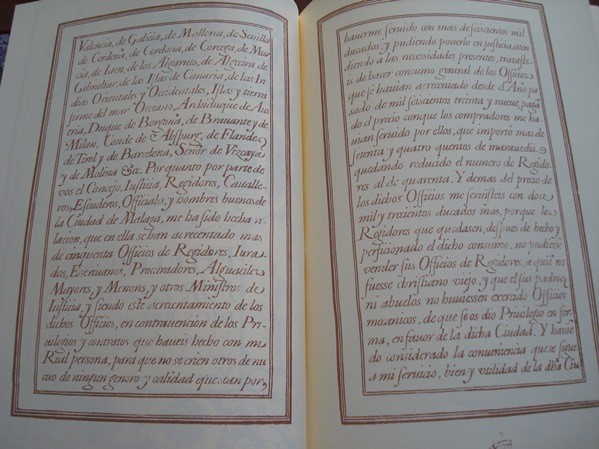 Valencia, de Galicia, de Mallorca, de Sevilla
de Cerdeña, de Cordova, de Corcega, de Mur
cia, de Iaen, de los Algarves, de Algecira, de
Gibraltar, de las Islas de Canaria, de las In
dias Orientales y Occidentales, Islas y tierra
firme del mar Oceano, Archiduque de Aus
tria, Duque de Borgoña, de Brauante y de
Milan, Conde de Abspurg, de Flandes
de Tirol y de Barcelona, Señor de Vizcaya
y de Molina &a. Por quanto por parte de
vos el Concejo, Iusticia, Regidores, Caualle-
ros, Escuderos, Officiales, y hombres buenos de
la Ciudad de Malaga, me ha sido hecha re
lacion, que en ella se han acrecentado mas
de cinquenta Officios de Regidores, Iura-
dos, Escriuanos, Procuradores, Alguaciles
Mayores, y Menores, y otros Ministros de
Iusticia y siendo este acrecentamiento de los
dichos Officios, en contrauencion de los Pri-
uilegios y contratos que haueis hecho con mi
Real persona, para que no se crien otros de nu
euo de ningun genero y calidad que sean por,
hauerme seruido con mas de seiscientos mil
ducados y pudiendo ponerlo en justicia, aten
diendo a las necesidades presentes, trataste-
is de hacer consumo general de los Officios
que se hauian acrecentado desde el Año pa
sado de mil seiscientos treinta y nueue,
do el precio con que los compradores, me ha-
uian seruido por ellos, que importò mas de
setenta y quatro quentos de marauedis
quedando reducido el numero de Regido-
res al de quarenta. Y demas del precio de
los dichos Officios me seruisteis con doce
mil y trecientos ducados mas, porque los
Regidores que quedasen, despues de hecho y
perficionado el dicho consumo, no pudiesse
vender sus Officios de Regidores, a quiè no
fuesse christiano viejo y que el sus padres
ni abuelos no huuiessen exercido Officios
mecanicos, de que se os dio Priuilegio en for-
ma, en fauor de la dicha Ciudad. Y hauiē
do considerado la conueniencia que se sigue
a mi seruicio, bien y vtilidad de la dha Ciu